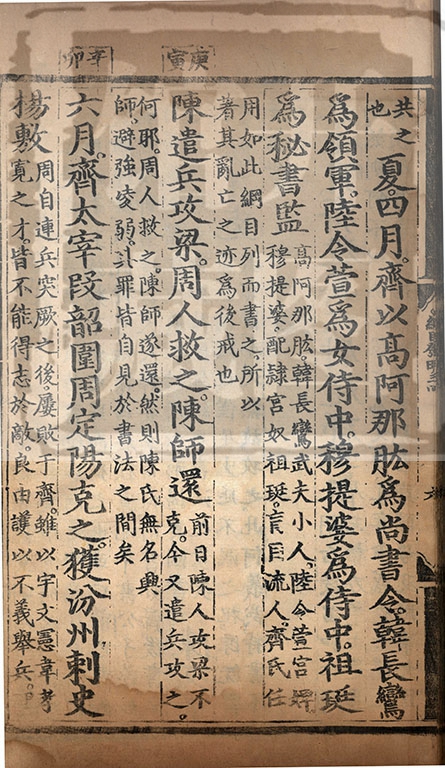 庚寅
辛卯
共之
也
夏。四月。齊以高阿那肱爲尚書令。韓長鸞
爲領軍。陸令萱爲女侍中。穆提婆爲侍中。祖珽
爲秘書監
高阿那肱。韓長鸞武夫小人。陸令萱宮婢
穆提婆。配隷宮奴祖珽。盲目流人。齊氏任
用如此綱目列而書之。所以
著其亂亡之迹爲後戒也
陳遣兵攻梁。周人救之。陳師還
前日陳人攻梁不
克。今又遣兵攻之。
何耶。周人救之。陳師遂還。然則陳氏無名興
師。避強凌弱。其罪皆自見於書法之間矣
六月。齊太宰段韶圍周定陽克之。獲汾州刺史
楊敷
周自連兵突厥之後。屢敗于齊。雖以宇文憲韋孝
寬之才。皆不能得志於敵。良由護以不義舉兵。